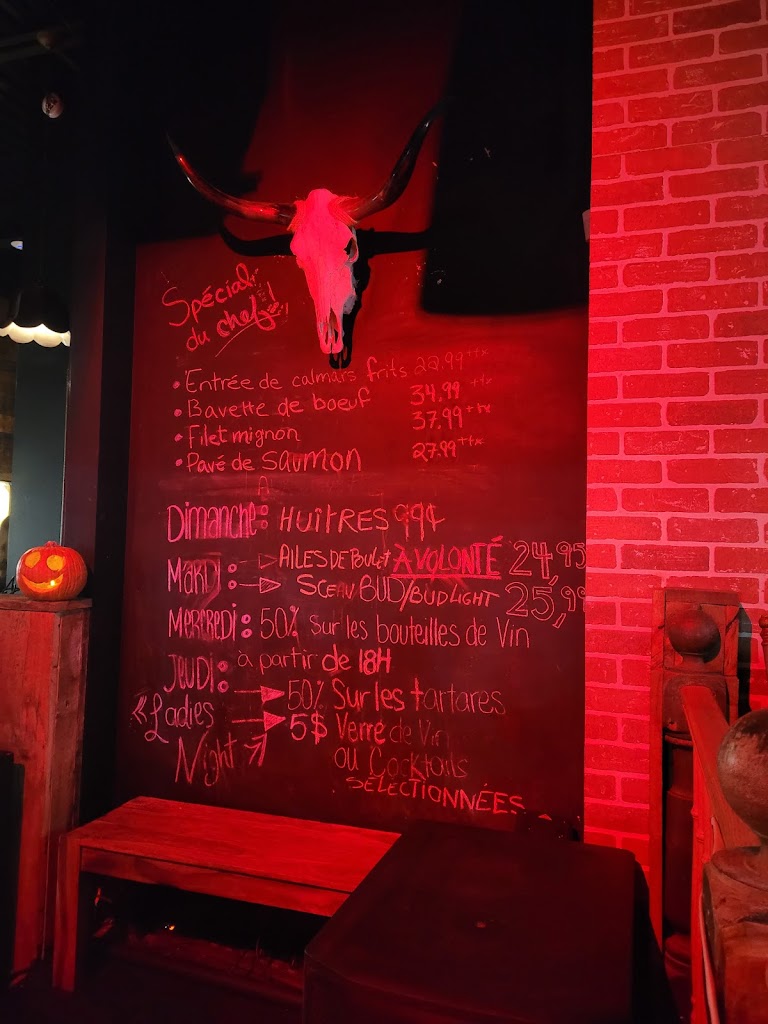 Spécial
du chef!
• Entrée de calmars frits 22.99 +tx
• Bavette de boeuf 34.99 +tx
• Filet mignon 37.99 +tx
• Pavé de saumon 27.99 +tx
Dimanche: HUÎTRES 99¢
MARDI: → AILES DE POULET À VOLONTÉ 24,95
→ SCEAU BUD/BUDLIGHT 25,99
MERCREDI: 50% sur les bouteilles de Vin
à partir de 18H
JEUDI: → 50% Sur les tartares
"Ladies → 5$ Verre de Vin
Night ou Cocktails
SÉLECTIONNÉES